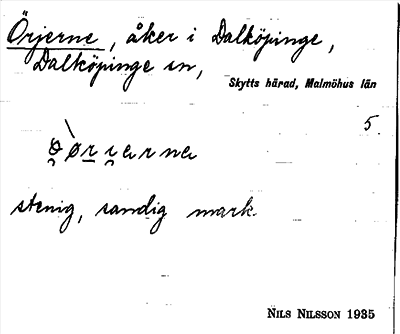 Örjerne, åker i Dalköpinge,
Dalköpinge sn,
Skytts härad, Malmöhus län
5.
stenig, sandig mark.
NILS NILSSON 1935